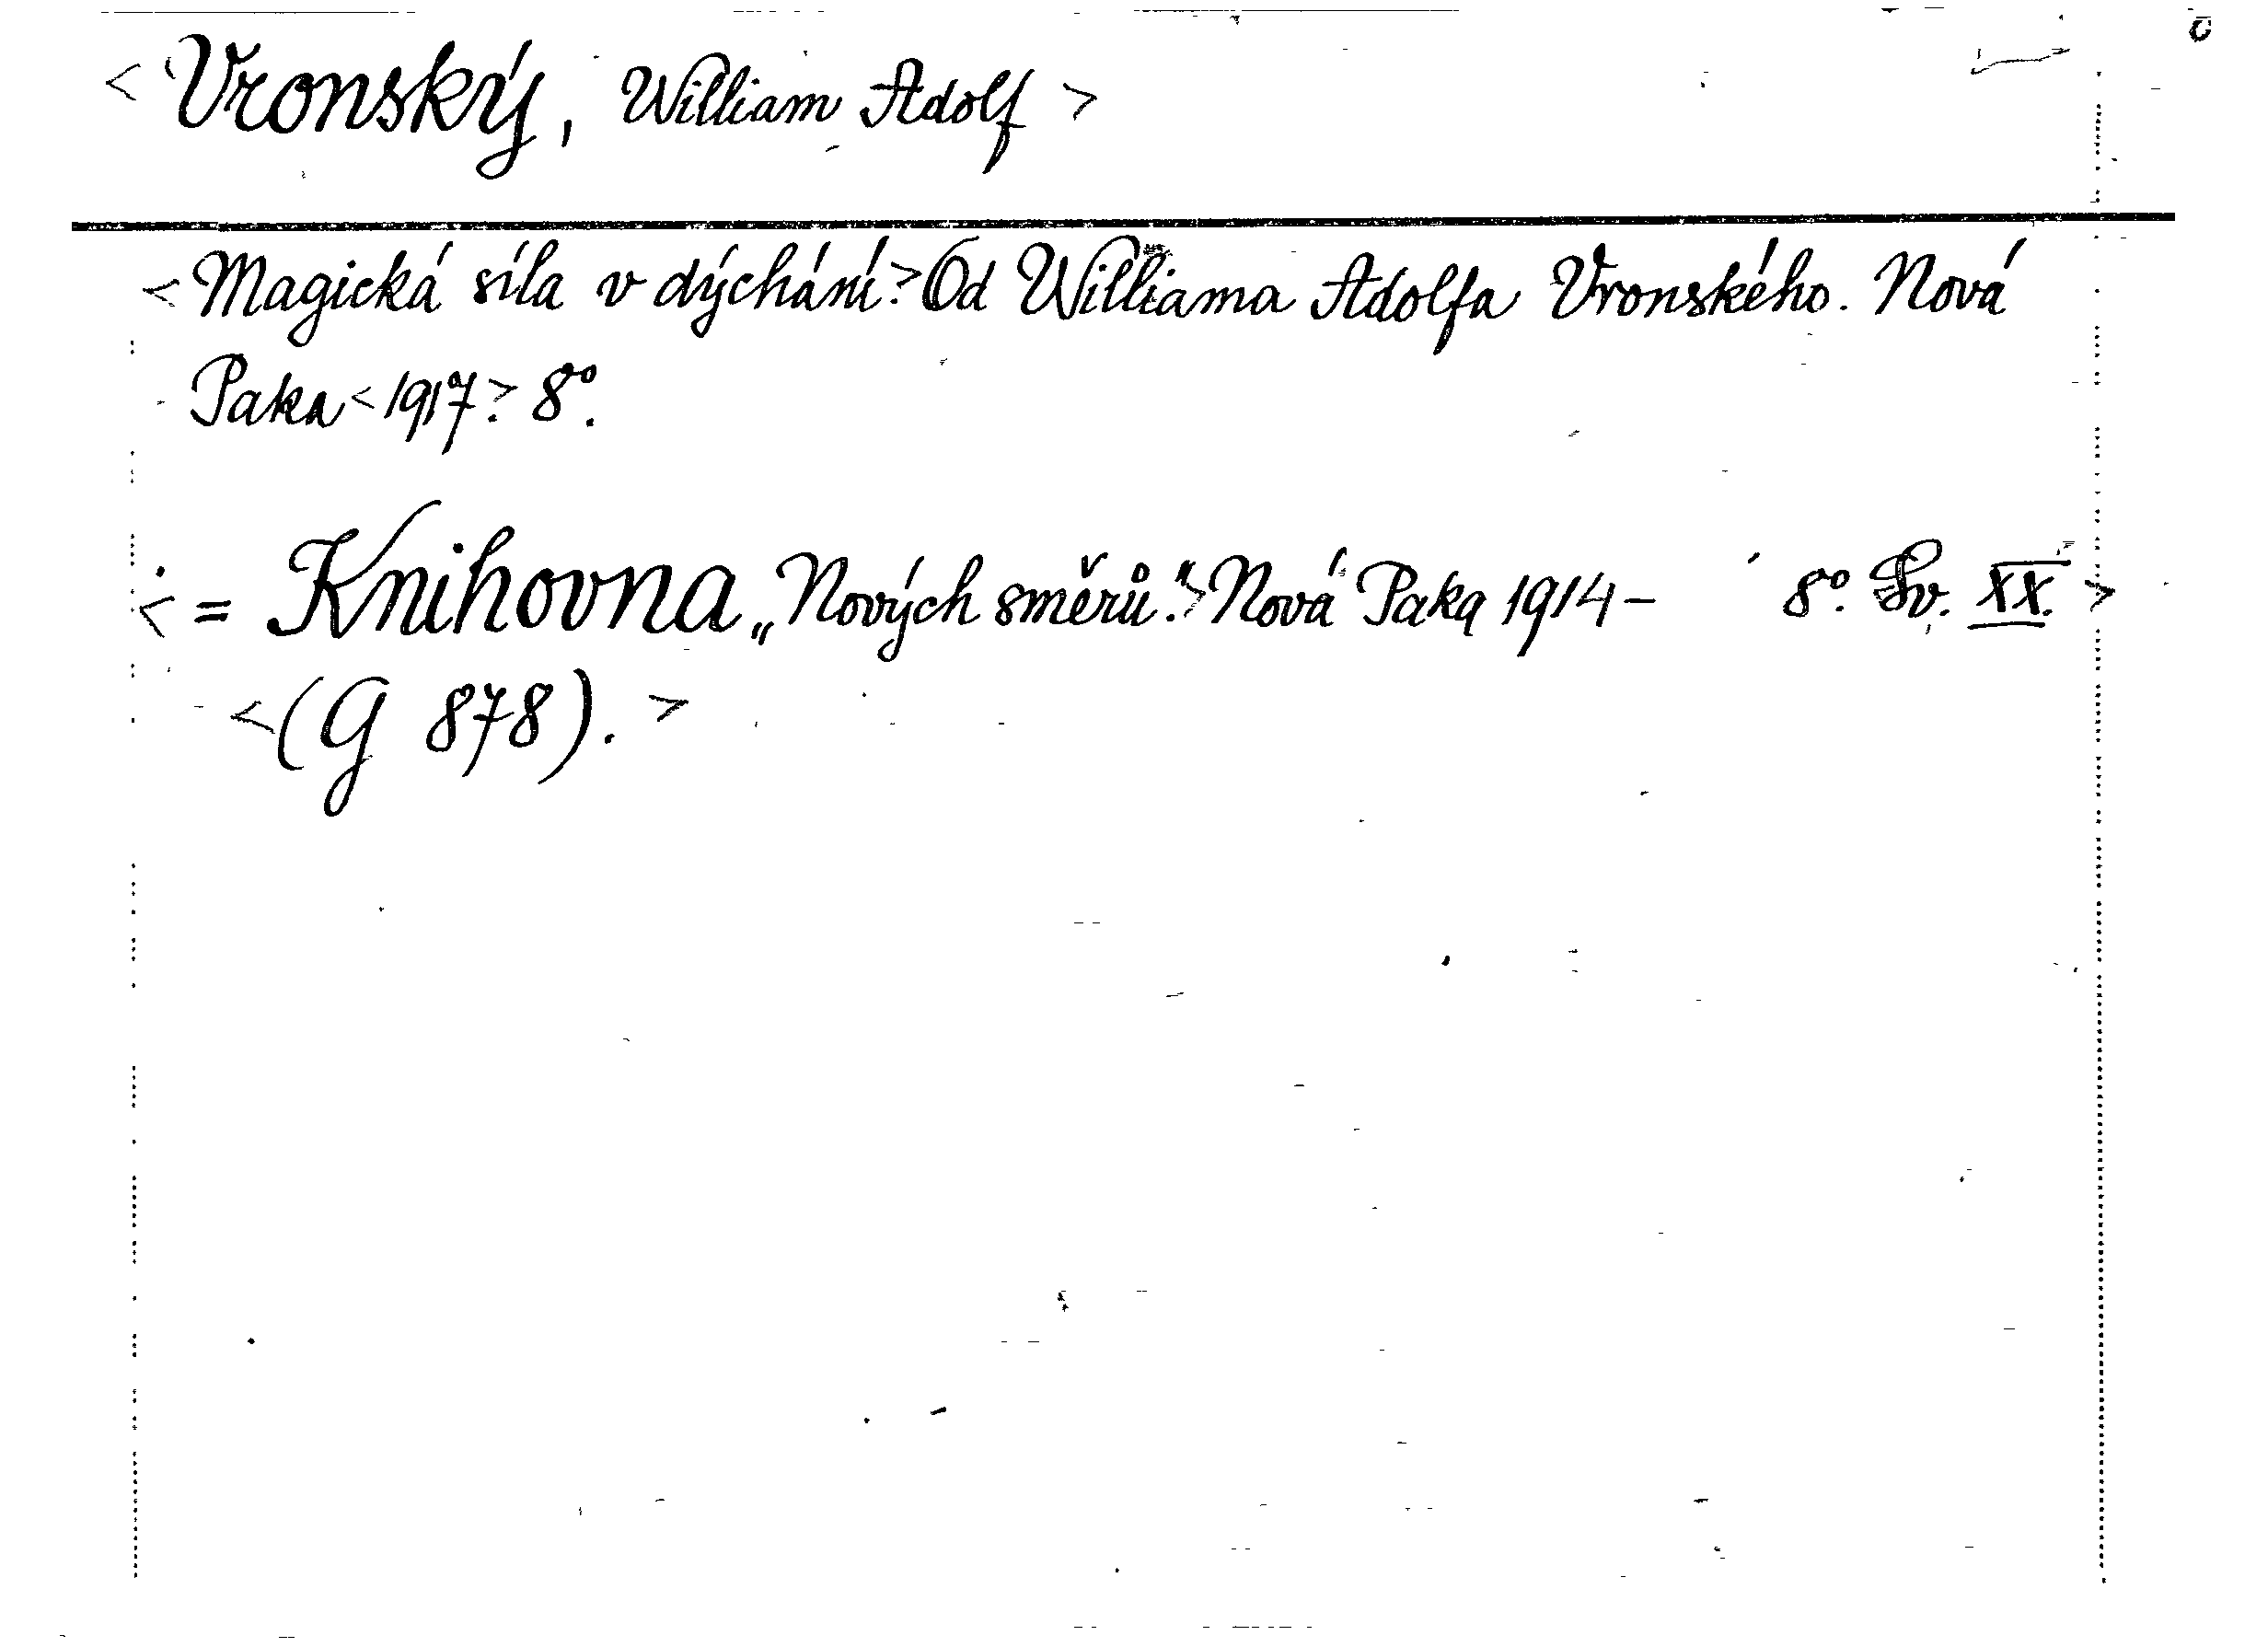 < Vronský, William Adolf >
< Magická síla v dýchání.> Od Williama Adolfa Vronského. Nová
Paka < 1917.> 8°.
< = Knihovna „Nových směrů.“> Nová Paka 1914 – 8°. Sv. XX. >
< (G 878). >